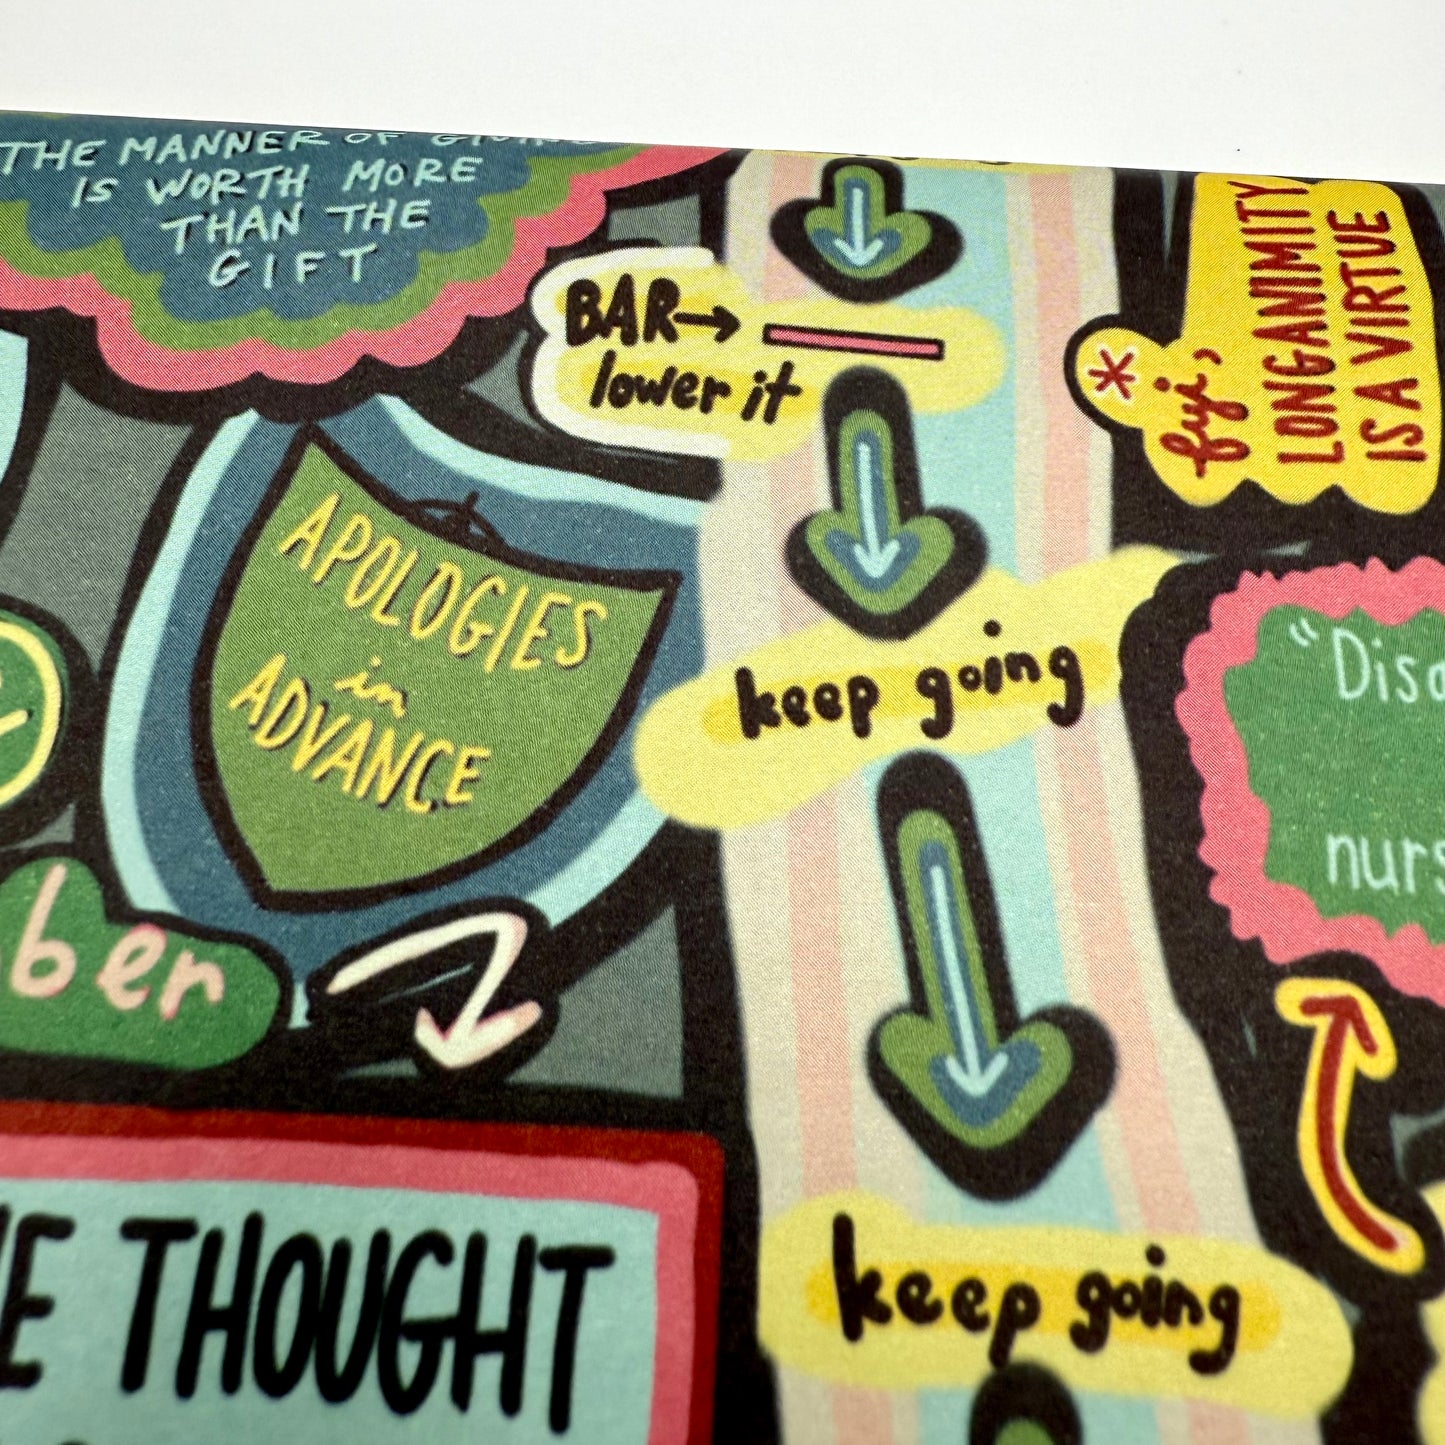 THE MANNER OF GIVING
IS WORTH MORE
THAN THE
GIFT
BAR→
lower it
*
fyi,
LONGANIMITY
IS A VIRTUE
APOLOGIES
in
ADVANCE
keep going
"Disc
nurs
ber
THOUGHT
keep going